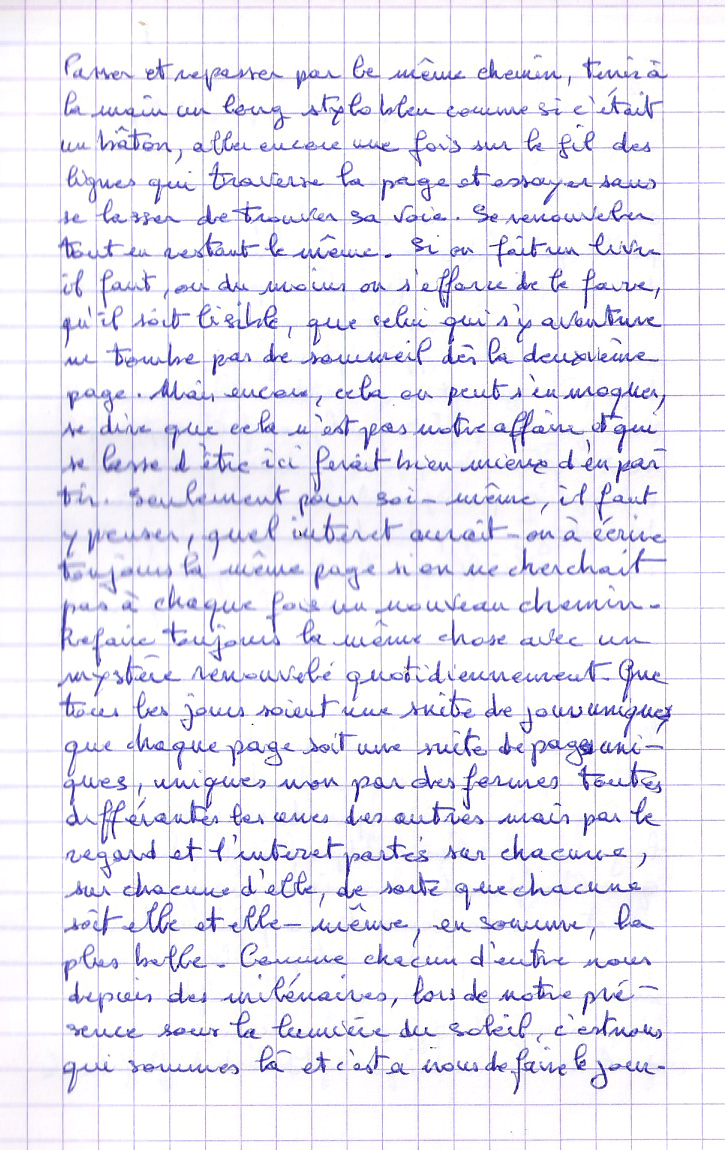 Passer et repasser par le même chemin, tenir à
la main un long stylo bleu comme si c'était
un bâton, aller encore une fois sur le fil des
lignes qui traverse la page et essayer sans
se lasser de trouver sa voie. Se renouveler
tout en restant le même. Si on fait un livre
il faut, ou du moins on s'efforce de le faire,
qu'il soit lisible, que celui qui s'y aventure
ne tombe pas de sommeil dès la deuxième
page. Mais encore, cela on peut s'en moquer,
se dire que cela n'est pas notre affaire et qui
se lasse d'être ici ferait bien mieux d'en par
tir. Seulement pour soi-même, il faut
y penser, quel interet aurait-on à écrire
toujours la même page si on ne cherchait
pas à chaque fois un nouveau chemin.
Refaire toujours la même chose avec un
mystère renouvelé quotidiennement. Que
tous les jours soient une suite de jour uniques
que chaque page soit une suite de pages uni-
ques, uniques non par des formes toutes
différantes les unes des autres mais par le
regard et l'interet portés sur chacune,
sur chacune d'elle, de sorte que chacune
soit elle et elle-même, en somme, la
plus belle. Comme chacun d'entre nous
depuis des milénaires, lors de notre pré-
sence sous la lumière du soleil, c'est nous
qui sommes là et c'est a nous de faire le jour.